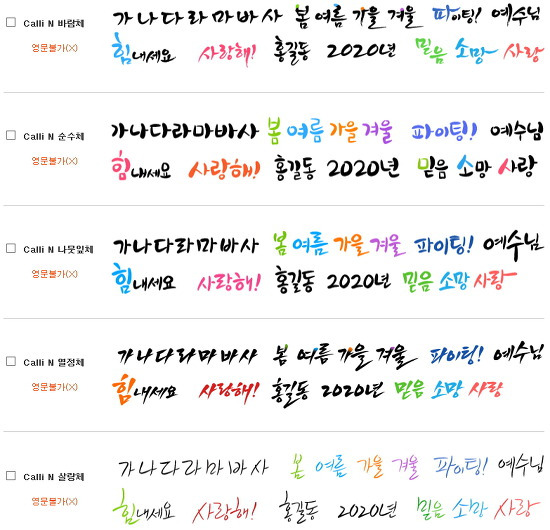 Calli N 바람체
영문불가(X)
가나다라마바사 봄 여름 가을 겨울 파이팅! 예수님
힘내세요 사랑해! 홍길동 2020년 믿음 소망 사랑
Calli N 순수체
영문불가(X)
가나다라마바사 봄 여름 가을 겨울 파이팅! 예수님
힘내세요 사랑해! 홍길동 2020년 믿음 소망 사랑
Calli N 나뭇잎체
영문불가(X)
가나다라마바사 봄 여름 가을 겨울 파이팅! 예수님
힘내세요 사랑해! 홍길동 2020년 믿음 소망 사랑
Calli N 열정체
영문불가(X)
가나다라마바사 봄 여름 가을 겨울 파이팅! 예수님
힘내세요 사랑해! 홍길동 2020년 믿음 소망 사랑
Calli N 살랑체
영문불가(X)
가나다라마바사 봄 여름 가을 겨울 파이팅! 예수님
힘내세요 사랑해! 홍길동 2020년 믿음 소망 사랑